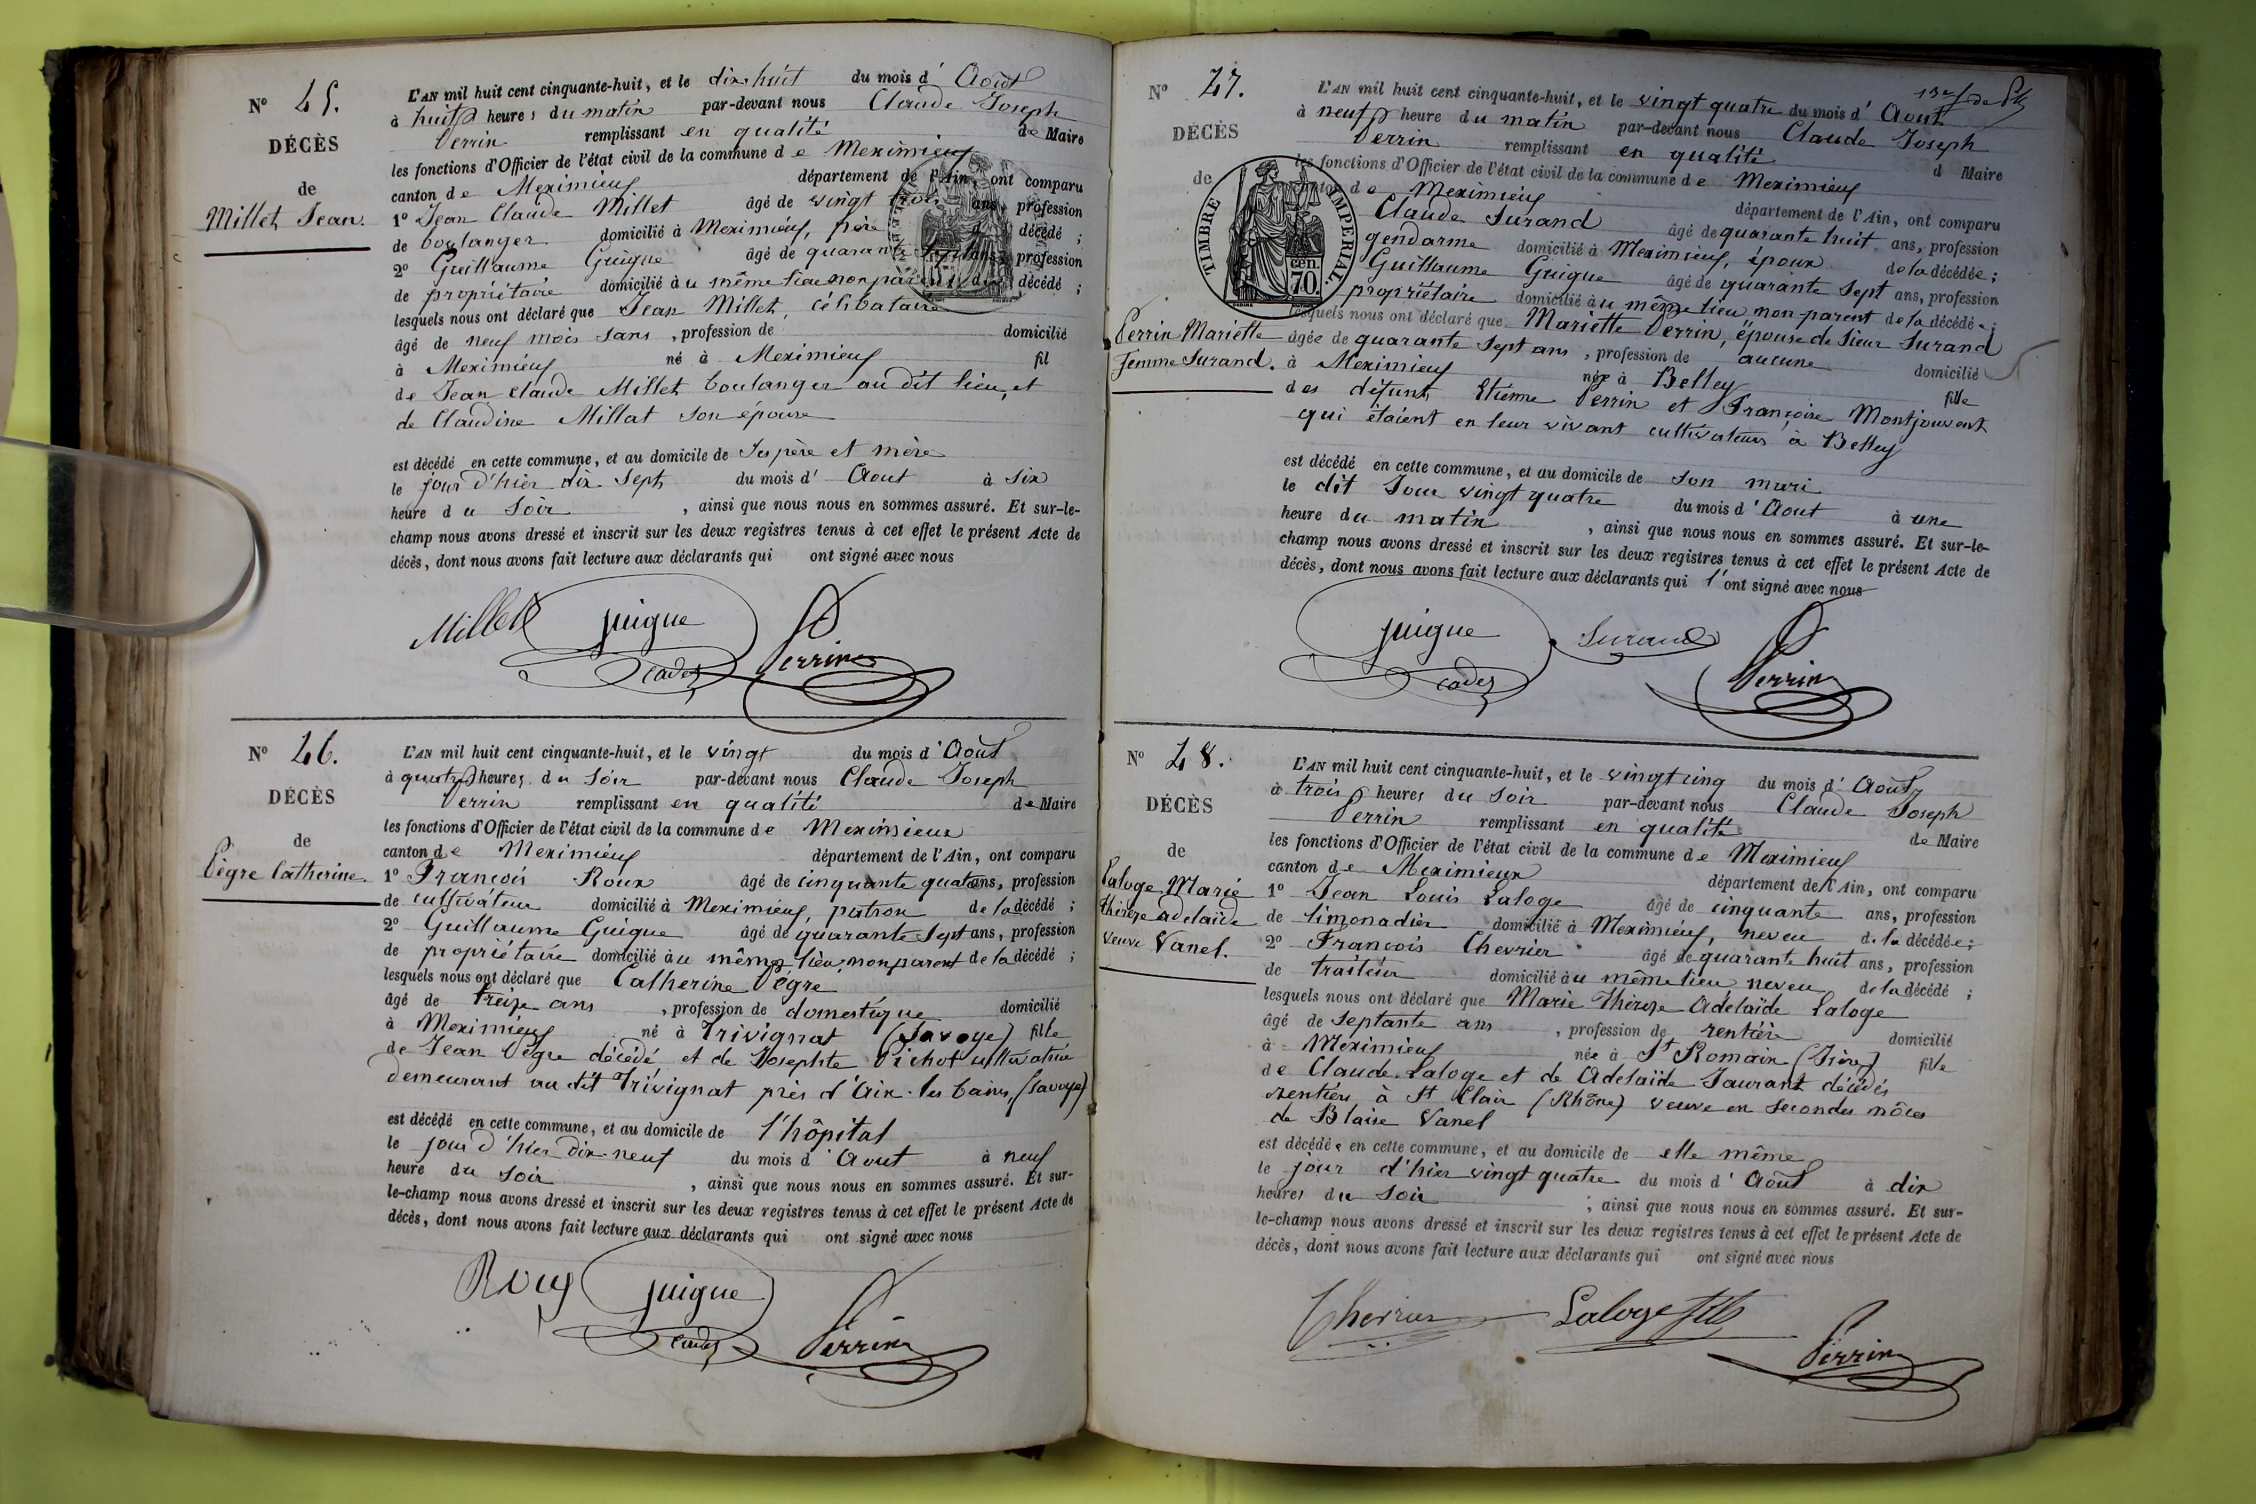 N° 45.
DÉCÈS
de
Millet Jean.
L'AN mil huit cent cinquante-huit, et le dix huit du mois d' Août
à huit heures du matin par-devant nous Claude Joseph
Perrin remplissant en qualité de Maire
les fonctions d'Officier de l'état civil de la commune de Meximieux
canton de Meximieux département de l'Ain, ont comparu
1° Jean Claude Millet âgé de vingt trois ans, profession
de boulanger domicilié à Meximieux, père décédé ;
2° Guillaume Guigue âgé de quarante sept ans, profession
de propriétaire domicilié au même lieu non parent du décédé ;
lesquels nous ont déclaré que Jean Millet, célibataire
âgé de neuf mois sans , profession de domicilié
à Meximieux né à Meximieux fil
de Jean Claude Millet boulanger au dit lieu, et
de Claudine Millat son épouse
est décédé en cette commune, et au domicile de ses père et mère
le jour d'hier dix sept du mois d' Aout à six
heure du soir , ainsi que nous nous en sommes assuré. Et sur-le-
champ nous avons dressé et inscrit sur les deux registres tenus à cet effet le présent Acte de
décès, dont nous avons fait lecture aux déclarants qui ont signé avec nous
Millet Guigue cadet Perrin
N° 46.
DÉCÈS
de
Pègre Catherine.
L'AN mil huit cent cinquante-huit, et le vingt du mois d' Août
à quatre heures du soir par-devant nous Claude Joseph
Perrin remplissant en qualité de Maire
les fonctions d'Officier de l'état civil de la commune de Meximieux
canton de Meximieux département de l'Ain, ont comparu
1° Francois Roux âgé de cinquante quatre ans, profession
de cultivateur domicilié à Meximieux, patron de la décédé ;
2° Guillaume Guigue âgé de quarante sept ans, profession
de propriétaire domicilié au même lieu, non parent de la décédé ;
lesquels nous ont déclaré que Catherine Pègre
âgé de treize ans , profession de domestique domicilié
à Meximieux né à Trivignat (Savoye) fille
de Jean Pègre décédé, et de Josephte Pichot cultivatrice
demeurant au dit Trivignat près d'Aix-les-bains, (Savoye)
est décédé en cette commune, et au domicile de l'hôpital
le jour d'hier dix-neuf du mois d' Aout à neuf
heure du soir , ainsi que nous nous en sommes assuré. Et sur-
le-champ nous avons dressé et inscrit sur les deux registres tenus à cet effet le présent Acte de
décès, dont nous avons fait lecture aux déclarants qui ont signé avec nous
Roux Guigue cadet Perrin
N° 47.
DÉCÈS
de
TIMBRE IMPERIAL.
70 cen.
Perrin Mariette
femme Surand.
L'AN mil huit cent cinquante-huit, et le vingt quatre du mois d' Aout
à neuf heure du matin par-devant nous Claude Joseph
Perrin remplissant en qualité d Maire
les fonctions d'Officier de l'état civil de la commune de Meximieux
canton de Meximieux département de l'Ain, ont comparu
Claude Surand âgé de quarante huit ans, profession
gendarme domicilié à Meximieux, époux de la décédée ;
Guillaume Guigue âgé de quarante sept ans, profession
propriétaire domicilié au même lieu non parent de la décédée ;
lesquels nous ont déclaré que Mariette Perrin, épouse de Sieur Surand
âgée de quarante sept ans , profession de aucune domicilié
à Meximieux née à Belley fille
des défunts Etienne Perrin et Françoise Montjouvent
qui étaient en leur vivant cultivateurs à Belley
est décédé en cette commune, et au domicile de son mari
le dit Jour vingt quatre du mois d' Aout à une
heure du matin , ainsi que nous nous en sommes assuré. Et sur-le-
champ nous avons dressé et inscrit sur les deux registres tenus à cet effet le présent Acte de
décès, dont nous avons fait lecture aux déclarants qui l'ont signé avec nous
Guigue cadet Surand Perrin
N° 48.
DÉCÈS
de
Laloge Marie
thérèse adelaïde
veuve Vanel.
L'AN mil huit cent cinquante-huit, et le vingt cinq du mois d' Août
à trois heures du soir par-devant nous Claude Joseph
Perrin remplissant en qualité de Maire
les fonctions d'Officier de l'état civil de la commune de Meximieux
canton de Meximieux département de l'Ain, ont comparu
1° Jean Louis Laloge âgé de cinquante ans, profession
de limonadier domicilié à Meximieux, neveu de la décédée ;
2° Francois Chevrier âgé de quarante huit ans, profession
de traiteur domicilié au même lieu, neveu de la décédé ;
lesquels nous ont déclaré que Marie Thérèse Adélaïde Laloge
âgé de septante ans , profession de rentière domicilié
à Meximieux née à St Romain (Isère) fille
de Claude Laloge et de Adelaïde Jaurant décédés
rentiers à St Clair (Rhône) veuve en secondes nôces
de Blaise Vanel
est décédée en cette commune, et au domicile de elle même
le jour d'hier vingt quatre du mois d' Août à dix
heures du soir ; ainsi que nous nous en sommes assuré. Et sur-
le-champ nous avons dressé et inscrit sur les deux registres tenus à cet effet le présent Acte de
décès, dont nous avons fait lecture aux déclarants qui ont signé avec nous
Chevrier Laloge Perrin